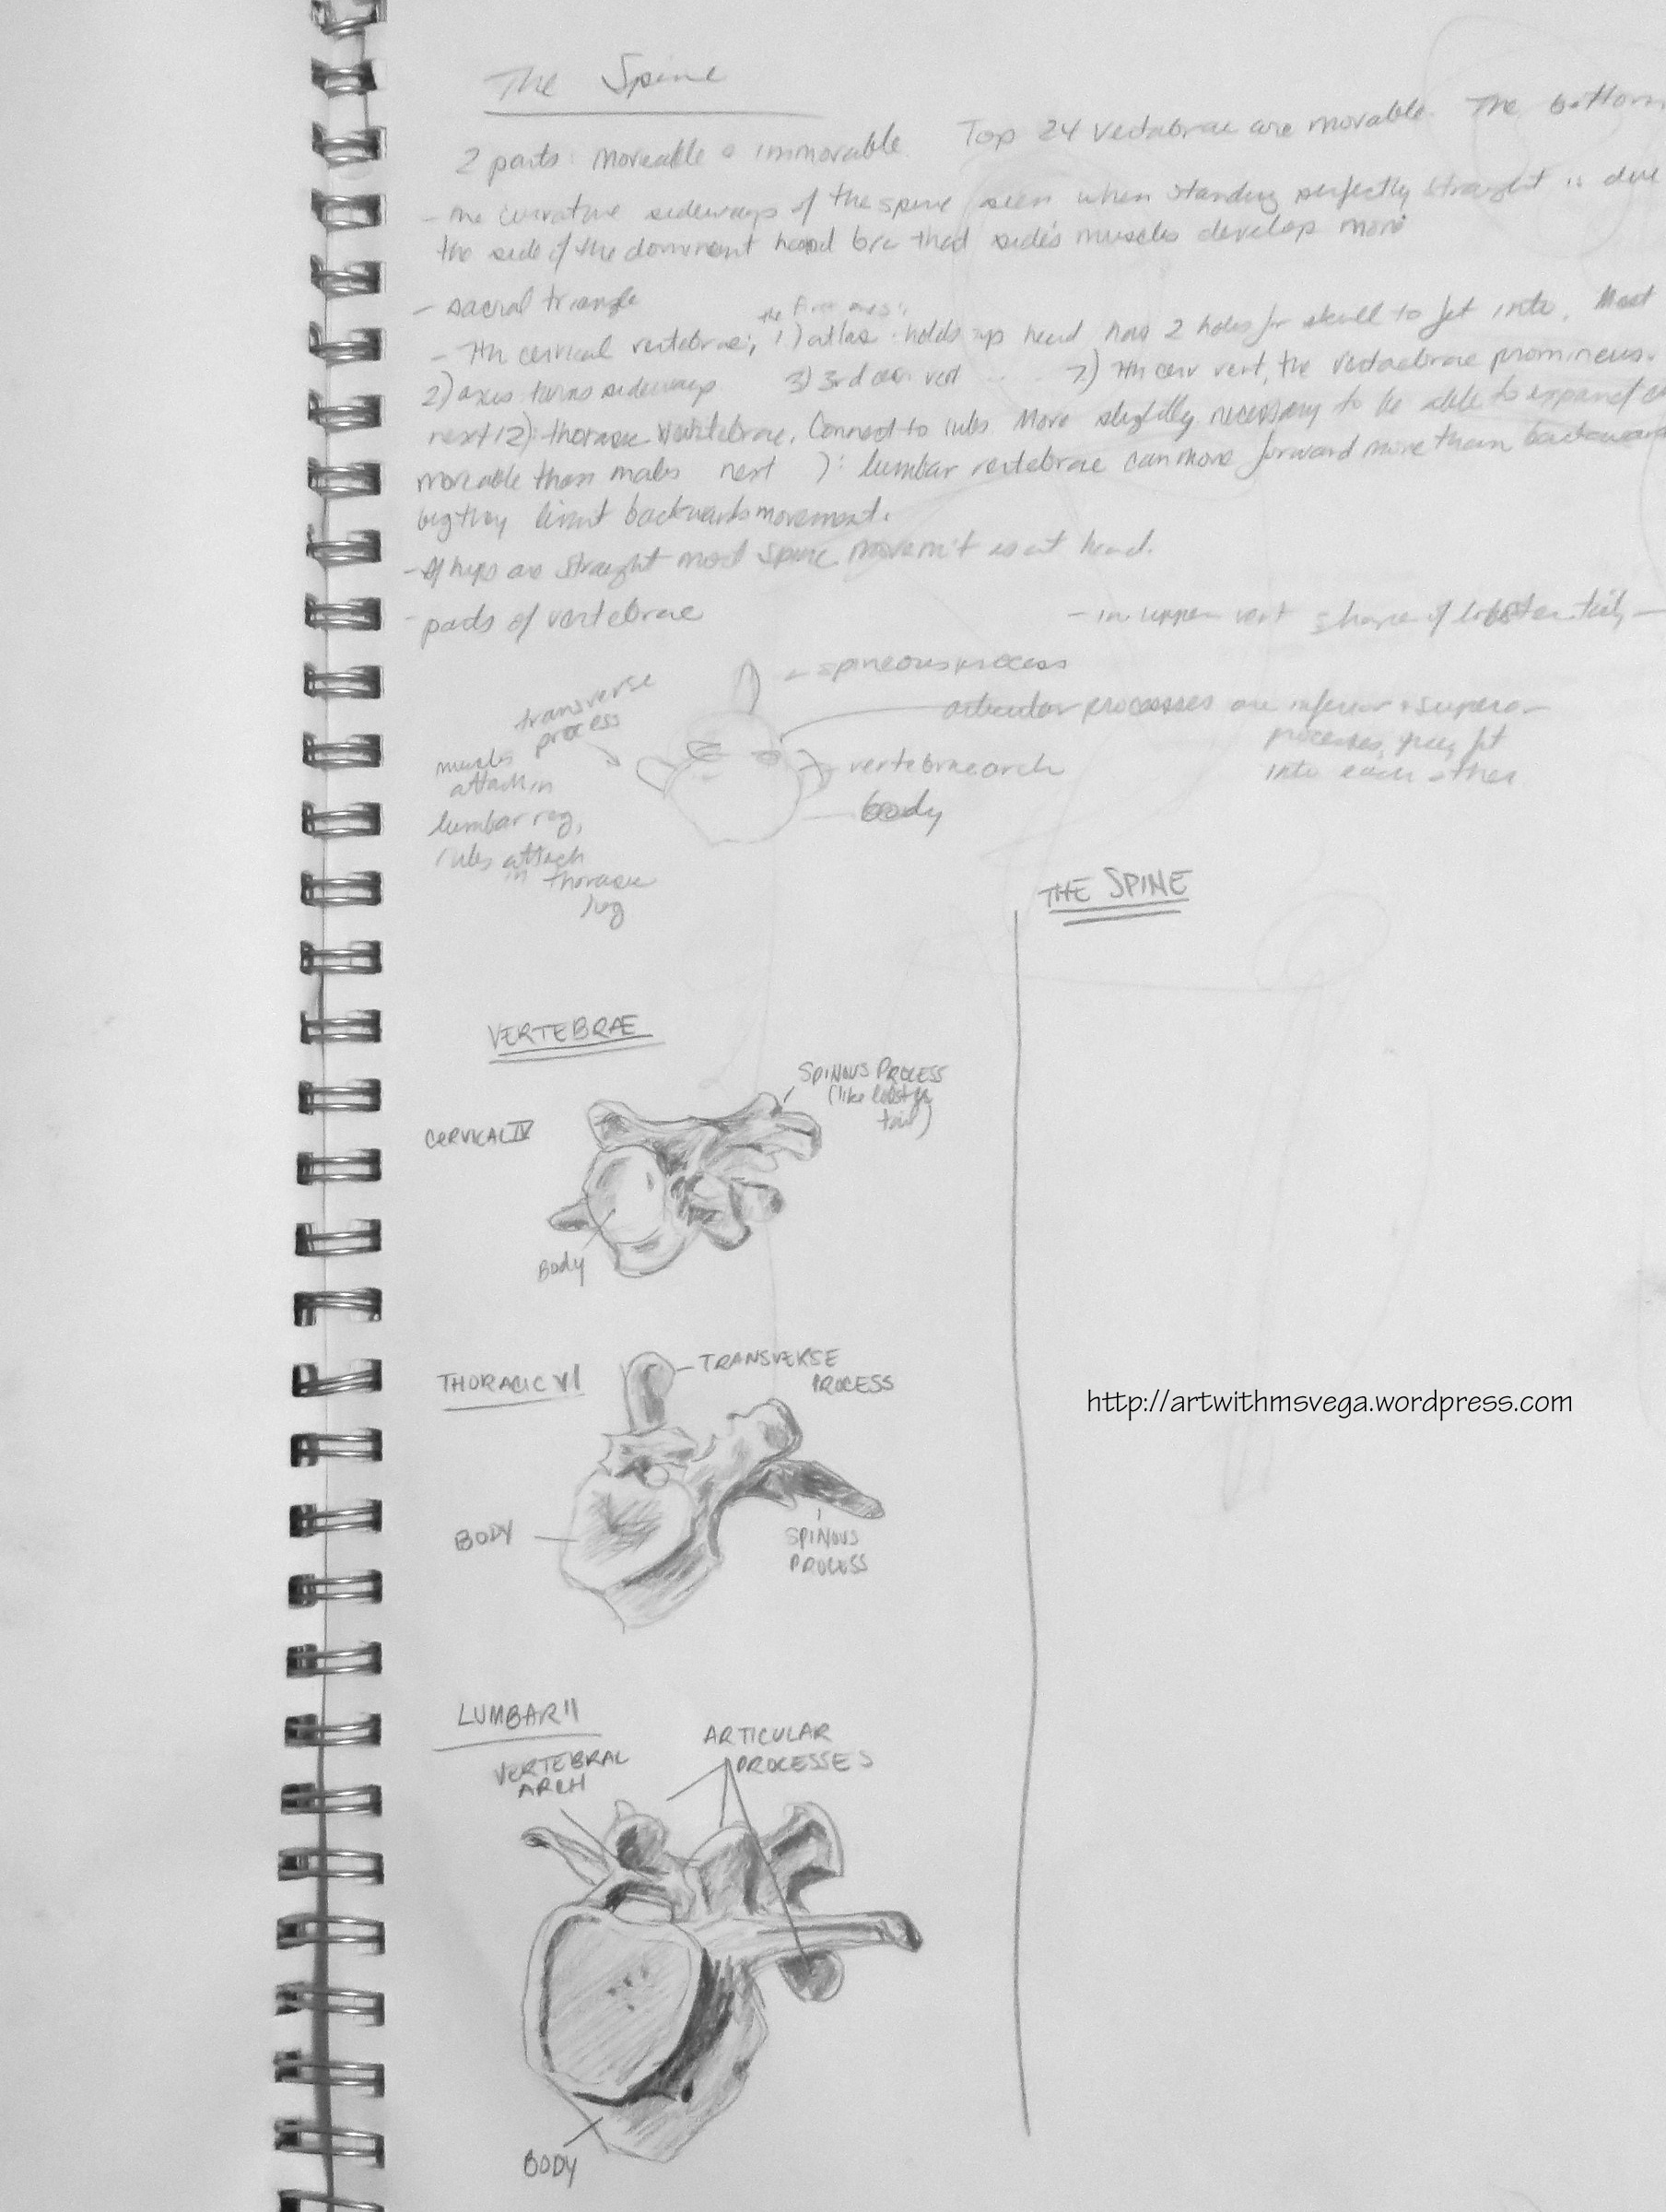 The Spine
2 parts: moveable & immovable. Top 24 vertabrae are movable. The bottom
- the curvature sideways of the spine seen when standing perfectly straight is due
the side of the dominant hand b/c that side's muscles develop more
- sacral triangle
the first ones:
- 7th cervical vertebrae; 1) atlas holds up head has 2 holes for skull to fit into. Most
2) axis turns sideways 3) 3rd cerv vert .. .. 7) 7th cerv vert, the vertaebrae prominens.
next 12): thorasic vertebrae. Connect to ribs More slightly necessary to be able to expand
moveable than males next ): lumbar vertebrae can move forward more than backward
limit backwards movement.
- If hips are straight most spine movem't is at head.
- parts of vertebrae
- in upper vert shape of lobster tail
spineous process
transverse
process
articular processes are inferior & superior
processes, they fit
into each other
muscles
attach in
lumbar reg,
ribs attach
in thorasic
reg
vertebrae arch
body
THE SPINE
VERTEBRAE
SPINOUS PROCESS
(like lobster
tail)
CERVICAL IV
Body
THORACIC VI
TRANSVERSE
PROCESS
BODY
SPINOUS
PROCESS
http://artwithmsvega.wordpress.com
LUMBAR II
VERTEBRAL
ARCH
ARTICULAR
PROCESSES
BODY